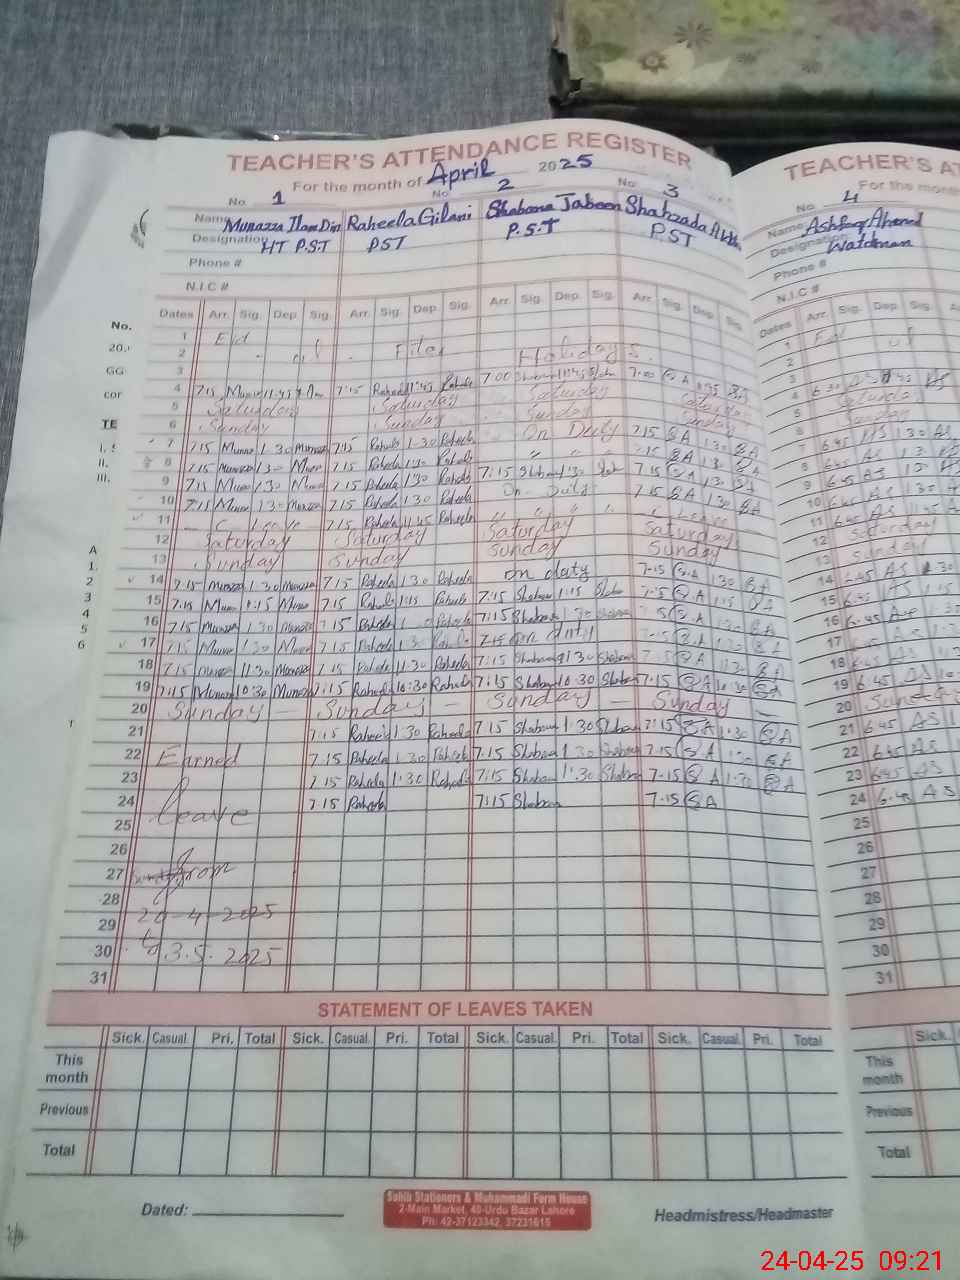 TEACHER'S ATTENDANCE REGISTER
For the month of April 2025
No 1 No 2 No 3
Name Munazza Ilam Din Raheela Gilani Shabana Jabeen Shahzada
Designation HT P.S.T PST P.S.T PST
Phone #
N.I.C #
Dates Arr. Sig. Dep. Sig. Arr. Sig. Dep. Sig. Arr. Sig. Dep. Sig. Arr. Sig. Dep. Sig.
1 Eid
2 ul Fiter Holidays.
3
4 7:15 11:45 7:15 Raheela 11:45 Raheela 7:00 Shaban 11:45 7:00 S A 11:45
5 Saturday Saturday Saturday Saturday
6 Sunday Sunday Sunday Sunday
7 7:15 Muna 1:30 Munazza 7:15 Raheela 1:30 Raheela On Duty 7:15 S A 1:30 S A
8 7:15 Munazza 1:30 Muna 7:15 Raheela 1:30 Raheela " " " 7:15 S A 1:30 S A
9 7:15 Muna 1:30 Muna 7:15 Raheela 1:30 Raheela 7:15 Shaban 1:30 Shab 7:15 S A 1:30 S A
10 7:15 Muna 1:30 Munazza 7:15 Raheela 1:30 Raheela On Duty 7:15 S A 1:30 S A
11 C Leave 7:15 Raheela 11:45 Raheela " " " " C Leave
12 Saturday Saturday Saturday Saturday
13 Sunday Sunday Sunday Sunday
14 7:15 Munazza 1:30 Munazza 7:15 Raheela 1:30 Raheela on duty 7:15 S.A 1:30 S A
15 7:15 Muna 1:15 Muna 7:15 Raheela 1:15 Raheela 7:15 Shaban 1:15 Shaban S.A 1:15 S A
16 7:15 Munazza 1:30 Munazza 7:15 Raheela Raheela 7:15 Shaban 1:30 Shaban S A 1:30 S A
17 7:15 Muna 1:30 Muna 7:15 Raheela 1:30 Raheela on duty 7:15 S A 1:30 S A
18 7:15 Munazza 11:30 Munazza 7:15 Raheela 11:30 Raheela 7:15 Shaban 11:30 Shaban 7:15 S A 11:30 S A
19 7:15 Munazza 10:30 Munazza 7:15 Raheela 10:30 Raheela 7:15 Shaban 10:30 Shaban 7:15 S A 10:30 S A
20 Sunday — Sunday — Sunday — Sunday —
21 7:15 Raheela 1:30 Raheela 7:15 Shaban 1:30 Shaban 7:15 S A 1:30 S A
22 Earned 7:15 Raheela 1:30 Raheela 7:15 Shaban 1:30 Shaban 7:15 S A 1:30 S A
23 7:15 Raheela 1:30 Raheela 7:15 Shaban 1:30 Shaban 7:15 S A 1:30 S A
24 Leave 7:15 Raheela 7:15 Shaban 7:15 S A
25
26
27 from
28
29 20-4-2025
30 to 3.5.2025
31
STATEMENT OF LEAVES TAKEN
Sick. Casual. Pri. Total Sick. Casual. Pri. Total Sick. Casual. Pri. Total Sick. Casual. Pri. Total
This month
Previous
Total
Dated:
Sahib Stationers & Muhammadi Form House
2-Main Market, 40-Urdu Bazar Lahore
Ph: 42-37123342, 37231615
Headmistress/Headmaster
No.
20.
GG
cor
TE
i.
ii.
iii.
A
1.
2
3
4
5
6
TEACHER'S AT
For the month
No 4
Name Ashfaq Ahmad
Designation Watchman
Phone #
N.I.C #
Dates Arr. Sig. Dep. Sig.
1 Eid ul
2
3
4 6:30 AS
5 Saturday
6 Sunday
7 6:45 AS 1:30 AS
8 6:45 AS 1:30
9 6:45 AS 1:30
10 6:45 AS 1:30
11 6:45 AS
12 Saturday
13 Sunday
14 6:45 AS 1:30
15 6:45 AS 1:15
16 6:45 1:30
17 6:45
18 6:45 AS
19 6:45 AS
20 Sunday
21 6:45 AS
22 6:45 AS
23 6:45 AS
24 6:45 AS
25
26
27
28
29
30
31
Sick.
This month
Previous
Total
24-04-25 09:21